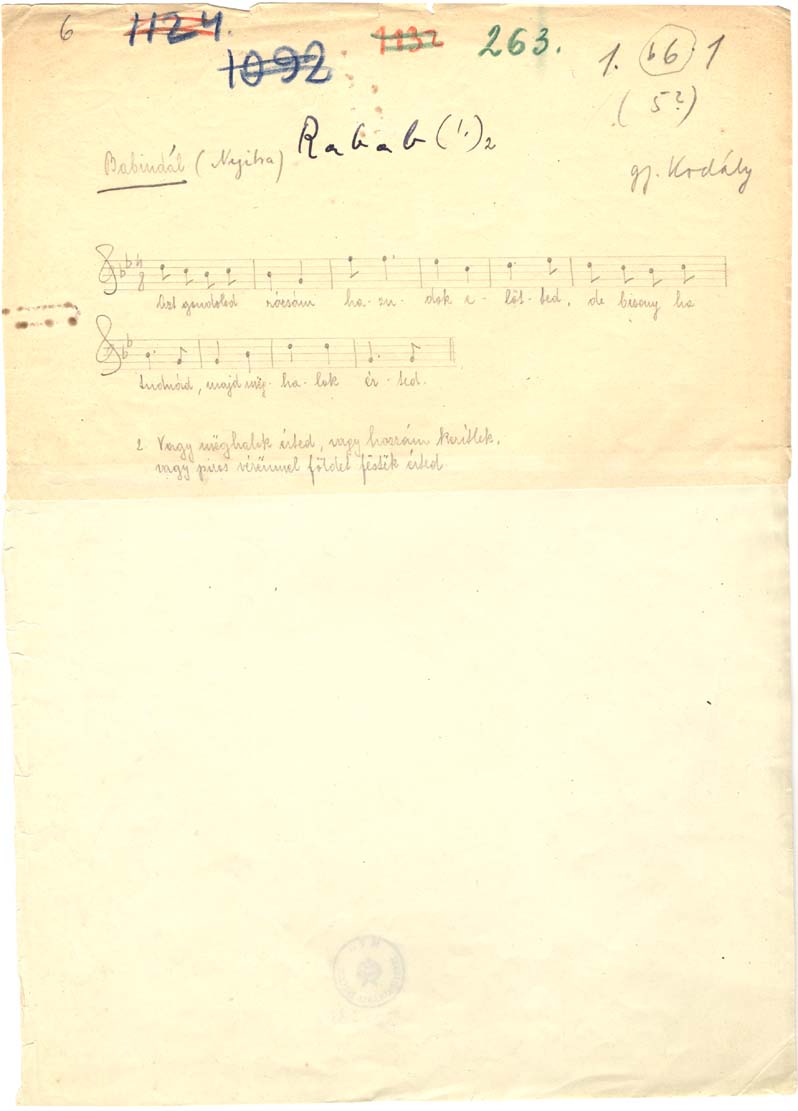 6 1124. 1092 1132 263. 1. b6. 1
(5?)
Babindál (Nyitra) Rabab (1.) 2 gj. Kodály
Azt gondolod rózsám ha-zu-dok e-lőt-ted, de bisony ha
tudnád, majd mëg-ha-lok ér-ted.
2. Vagy mëghalok érted, vagy hozzám kerítlek,
vagy piros vérëmmel földet festëk érted